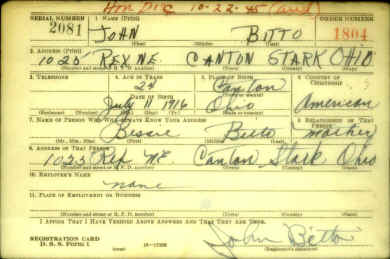 Hon Disc 10-22-45
SERIAL NUMBER 1. NAME (Print) ORDER NUMBER
2081 JOHN BITTO 1804
(First) (Middle) (Last)
2. ADDRESS (Print)
1025 REX NE. CANTON STARK OHIO
(Number and street or R. F. D. number) (Town) (County) (State)
3. TELEPHONE 4. AGE IN YEARS 5. PLACE OF BIRTH 6. COUNTRY OF CITIZENSHIP
24 Canton
DATE OF BIRTH (Town or county)
July 11 1916 Ohio American
(Exchange) (Number) (Mo.) (Day) (Yr.) (State or country)
7. NAME OF PERSON WHO WILL ALWAYS KNOW YOUR ADDRESS 8. RELATIONSHIP OF THAT PERSON
Bessie Bitto mother
(Mr., Mrs., Miss) (First) (Middle) (Last)
9. ADDRESS OF THAT PERSON
1025 Rex N.E. Canton, Stark Ohio
(Number and street or R. F. D. number) (Town) (County) (State)
10. EMPLOYER'S NAME
none
11. PLACE OF EMPLOYMENT OR BUSINESS
(Number and street or R. F. D. number) (Town) (County) (State)
I AFFIRM THAT I HAVE VERIFIED ABOVE ANSWERS AND THAT THEY ARE TRUE.
REGISTRATION CARD
D. S. S. Form 1 John Bitto